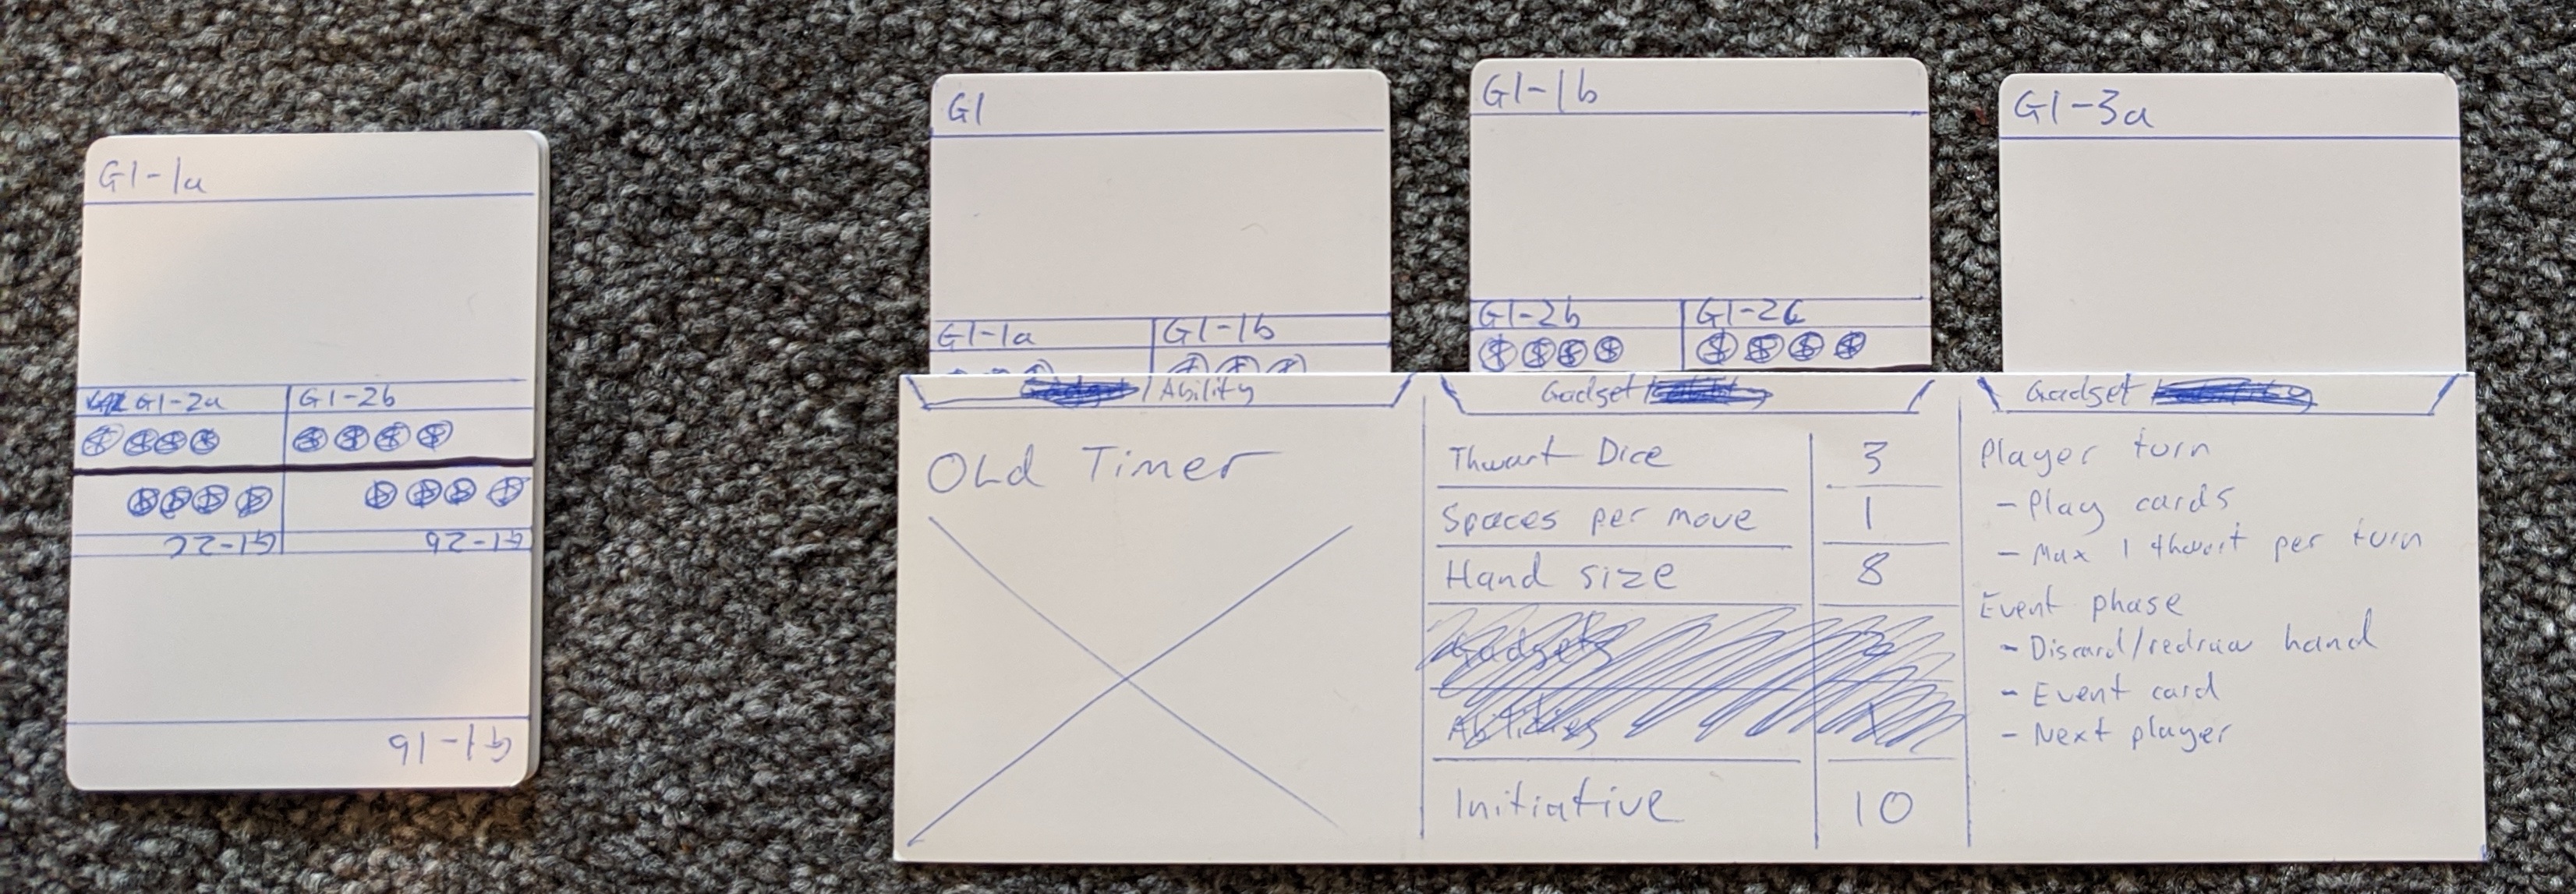 G1-1a
G1-2a
G1-2b
G1-2c
G1-2b
G1-1b
G1
G1-1a
G1-1b
G1-1b
G1-2b
G1-2c
G1-3a
/ Ability
Old Timer
Gadset /
Thwart Dice 3
Spaces per move 1
Hand size 8
Gadgets
Abilities 1
Initiative 10
Gadset /
Player turn
- Play cards
- Max 1 thwart per turn
Event phase
- Discard/redraw hand
- Event card
- Next player